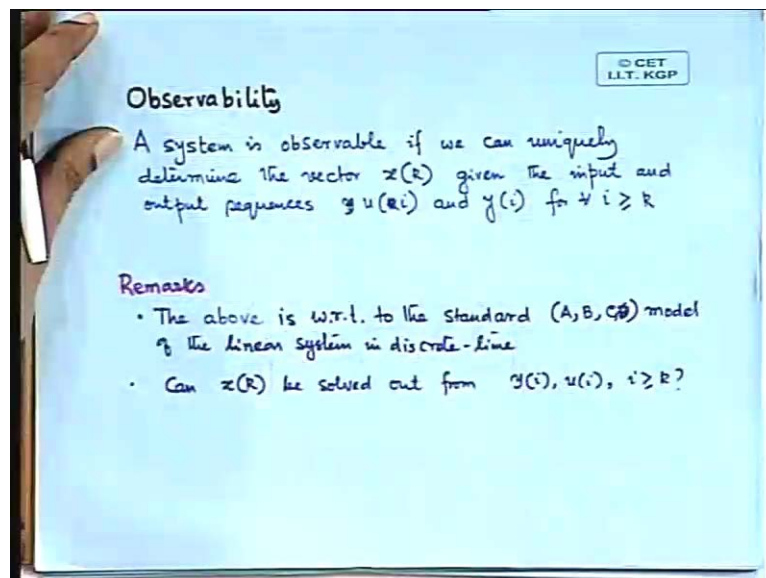 © CET
I.I.T. KGP
Observability
A system is observable if we can uniquely
determine the vector x(k) given the input and
output sequences u(i) and y(i) for ∀ i ≥ k
Remarks
• The above is w.r.t. to the standard (A, B, C) model
of the linear system in discrete-time
• Can x(k) be solved out from y(i), u(i), i ≥ k?